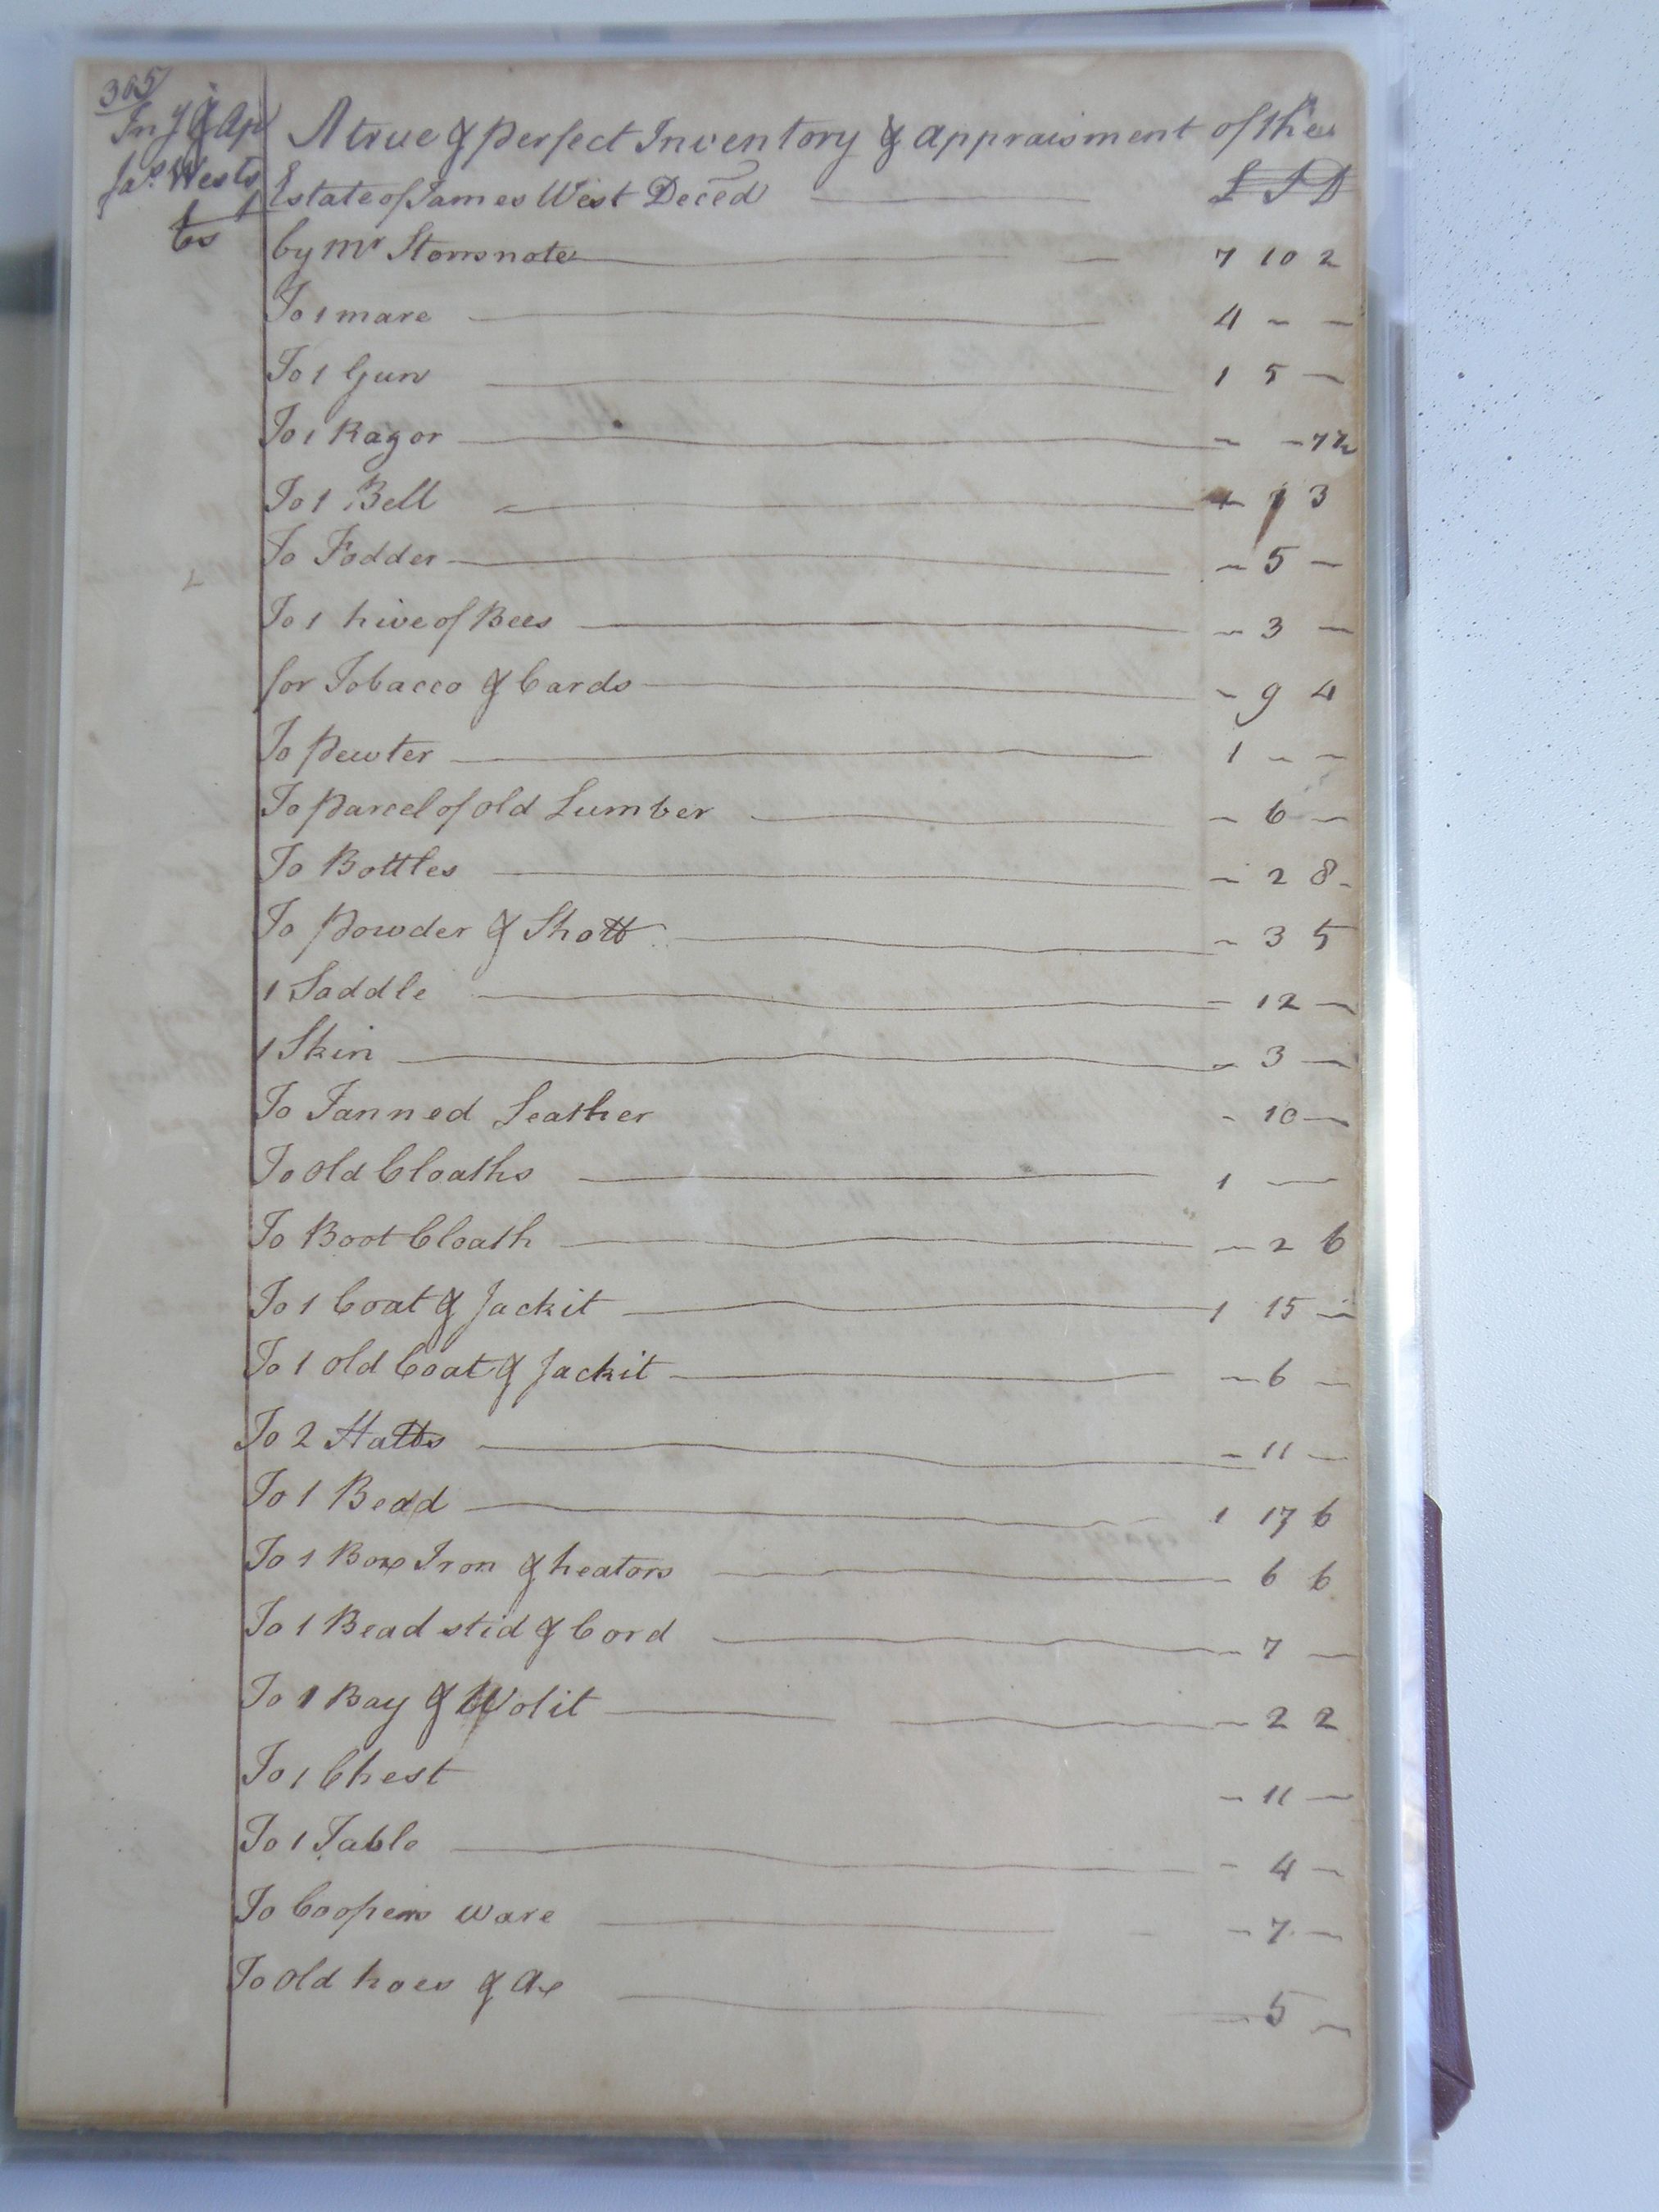 305
Inv.y & Ap
Ja.s Wests
Es
A true & perfect Inventory & appraisment of the
Estate of James West Deced £ S D
by Mr Storrs note 7 10 2
To 1 mare 4 - -
To 1 Gun 1 5 -
To 1 Razor - - 7½
To 1 Bell 3
To Fodder - 5 -
To 1 hive of Bees - 3 -
for Tobacco & Cards - 9 4
To pewter 1 - -
To parcel of old Lumber - 6 -
To Bottles - 2 8
To powder & Shott - 3 5
1 Saddle - 12 -
1 Skin - 3 -
To Tanned Leather - 10 -
To old Cloaths 1 -
To Boot Cloath - 2 6
To 1 Coat & Jackit 1 15 -
To 1 old Coat & Jackit - 6 -
To 2 Hatts - 11 -
To 1 Bedd 1 17 6
To 1 Box Iron & heators - 6 6
To 1 Bead stid & Cord - 7 -
To 1 Bag & Wolit - 2 2
To 1 Chest - 11 -
To 1 Table - 4 -
To Coopers ware - 7 -
To old hoes & Ax - 5 -